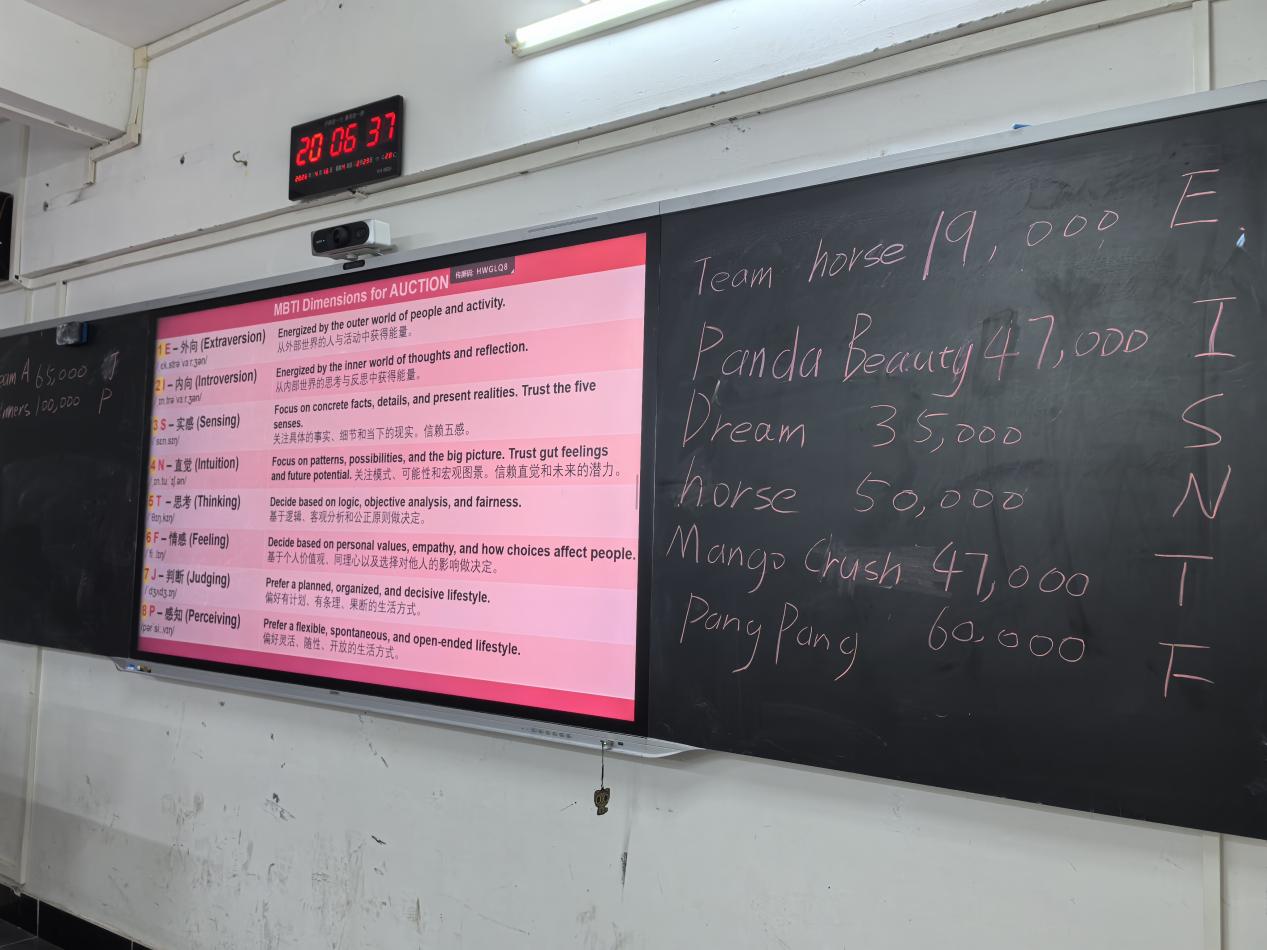 20 06 37
传屏码: HWGLQ8
MBTI Dimensions for AUCTION
1 E – 外向 (Extraversion)
Energized by the outer world of people and activity.
从外部世界的人与活动中获得能量。
2 I – 内向 (Introversion)
Energized by the inner world of thoughts and reflection.
从内部世界的思考与反思中获得能量。
3 S – 实感 (Sensing)
Focus on concrete facts, details, and present realities. Trust the five
senses.
关注具体的事实、细节和当下的现实。信赖五感。
4 N – 直觉 (Intuition)
Focus on patterns, possibilities, and the big picture. Trust gut feelings
and future potential. 关注模式、可能性和宏观图景。信赖直觉和未来的潜力。
5 T – 思考 (Thinking)
Decide based on logic, objective analysis, and fairness.
基于逻辑、客观分析和公正原则做决定。
6 F – 情感 (Feeling)
Decide based on personal values, empathy, and how choices affect people.
基于个人价值观、同理心以及选择对他人的影响做决定。
7 J – 判断 (Judging)
Prefer a planned, organized, and decisive lifestyle.
偏好有计划、有条理、果断的生活方式。
8 P – 感知 (Perceiving)
Prefer a flexible, spontaneous, and open-ended lifestyle.
偏好灵活、随性、开放的生活方式。
A 65,000 J
100,000 P
Team horse 19,000 E.
Panda Beauty 47,000 I
Dream 35,000 S
horse 50,000 N
Mango Crush 47,000 T
Pang Pang 60,000 F